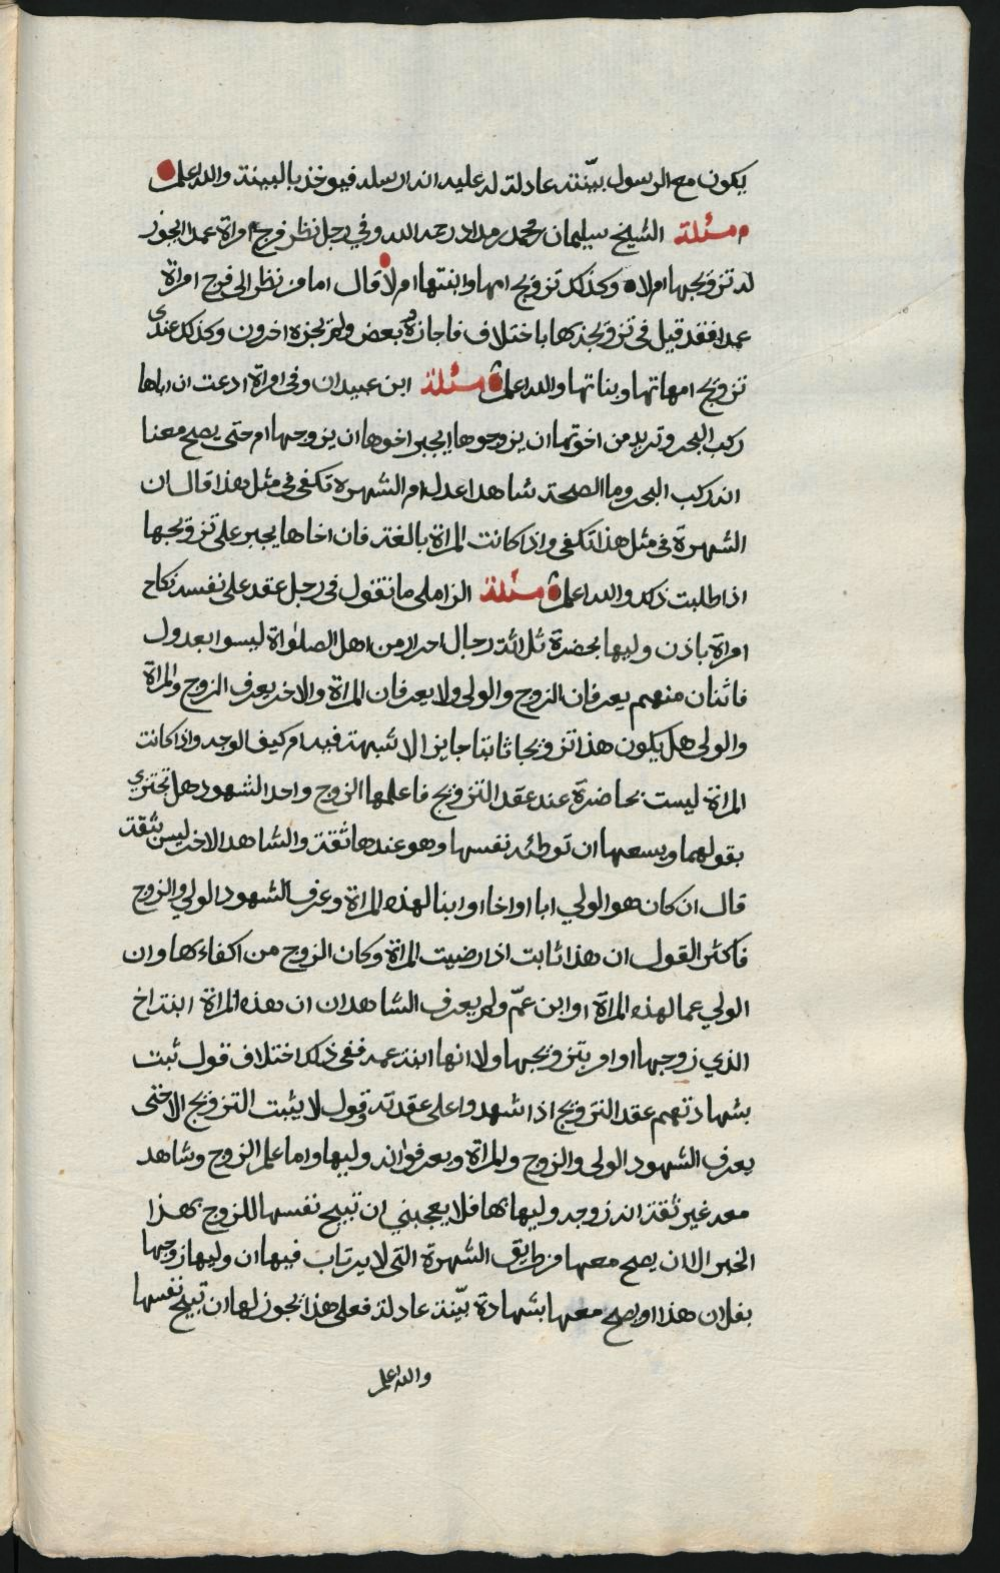 يكون مع الرسول بيّنته عادلة له عليه انه ارسله فيوخذ بالبينة والله اعلم
مسئلة الشيخ سليمان بن محمد بن مداد رحمه الله وفي رجل نظر فرج امراة عمدا ايجوز
له تزويجها ام لا وكذلك تزويج امها وابنتها ام لا قال اما من نظر الى فرج امراة
عمدا فقد قيل في تزويجه بها باختلاف فاجازه بعض ولم يجزه اخرون وكذلك عندى
تزويج امهاتها وبناتها والله اعلم مسئلة ابن عبيدان وفي امراة ادعت ان اباها
ركب البحر وتريد من اخوتها ان يزوجوها ايجبر اخوها ان يزوجها ام حتى يصح معنا
انه ركب البحر وما الصحة شاهدا عدل ام الشهرة تكفي في مثل هذا قال ان
الشهرة في مثل هذا تكفي واذا كانت المراة بالغة فان اخاها يجبر على تزويجها
اذا طلبت ذلك والله اعلم مسئلة الزاملي ما تقول في رجل عقد على نفسه نكاح
امراة باذن وليها بحضرة ثلاثة رجال احرار من اهل الصلواة ليسوا بعدول
فاثنان منهم يعرفان الزوج والولي ولا يعرفان المراة والاخر يعرف الزوج والمراة
والولي هل يكون هذا تزويجا ثابتا جايزا لا شبهة فيه ام كيف الوجه واذا كانت
المراة ليست بحاضرة عند عقد التزويج فاعلمها الزوج واحد الشهود هل تجتزي
بقولهما ويسعها ان توطئه نفسها وهو عندها ثقة والشاهد الاخر ليس بثقة
قال ان كان هو الولي ابا او اخا او ابنا لهذه المراة وعرف الشهود الولي والزوج
فاكثر القول ان هذا ثابت اذا رضيت المراة وكان الزوج من اكفاءها وان
الولي عما لهذه المراة او ابن عمّ ولم يعرف الشاهدان ان هذه المراة ابنة اخ
الذي زوجها او امر بتزويجها ولا انها ابنة عمه ففي ذلك اختلاف قول ثبت
بشهادتهم عقد التزويج اذا شهدوا على عقدته وقول لا يثبت التزويج الا حتى
يعرف الشهود الولي والزوج والمراة ويعرفوا انه وليها واما علم الزوج وشاهد
معه غير ثقة انه زوجه وليها بها فلا يعجبني ان تبيح نفسها للزوج بهذا
الخبر الا ان يصح معها من طريق الشهرة التي لا يرتاب فيها ان وليها زوجها
بفلان هذا او يصح معها بشهادة بيّنة عادلة فعلى هذا يجوز لها ان تبيح نفسها
والله اعلم